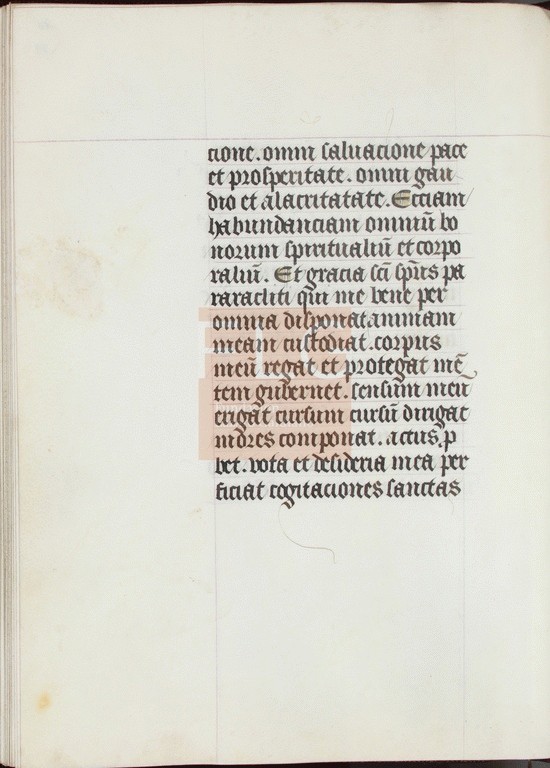 cione. omni saluacione pace
et prosperitate. omni gau
dio et alacritatate. Ecciam
habundanciam omniū bo
norum spiritualiū et corpo
raliū. Et gracia sc̄i sp̄us pa
raracliti qui me bene per
omnia disponat. animam
meam custodiat. corpus
meū regat et protegat mē
tem gubernet. sensum meū
erigat cursum cursū dirigat
mores componat. actus p
bet. vota et desideria mea per
ficiat cogitaciones sanctas